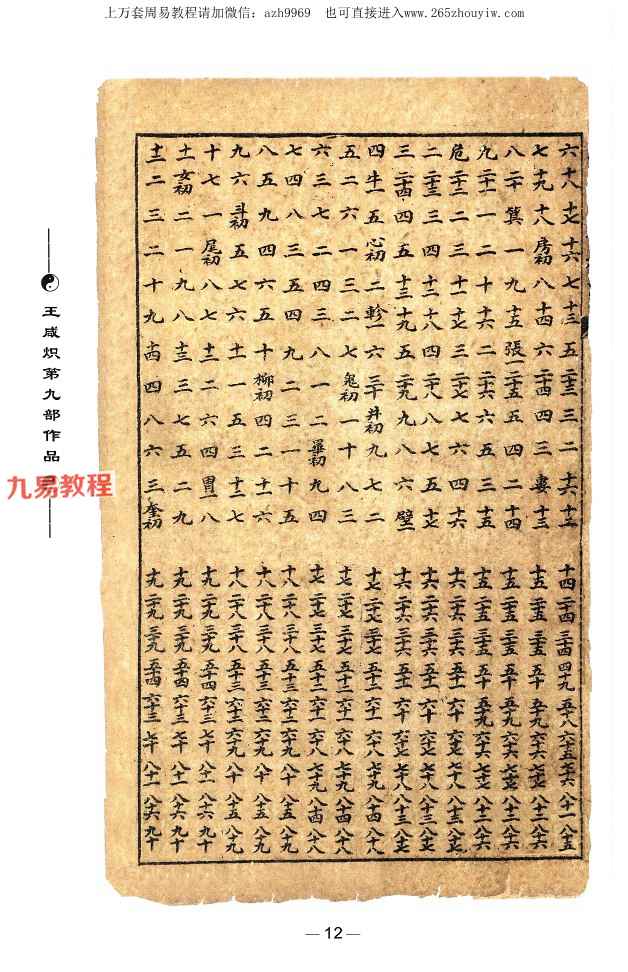 上万套周易教程请加微信：azh9969 也可直接进入www.265zhouyiw.com
六 十八 十七 十六 七 十三 五 二十三 三 二 十六 十二 十四 二十四 三十四 四十九 五十八 六十五 七十六 八十一 八十五
七 十九 十八 房初 八 十四 六 二十四 四 三 婁 十三 十五 二十五 三十五 五十 五十九 六十六 七十七 八十二 八十六
八 二十 箕 一 九 十五 張一 二十五 五 四 二 十四 十五 二十五 三十五 五十 五十九 六十六 七十七 八十二 八十六
九 二十一 一 二 十 十六 二 二十六 六 五 三 十五 十五 二十五 三十五 五十 五十九 六十六 七十七 八十二 八十六
危 二十二 二 三 十一 十七 三 二十七 七 六 四 十六 十六 二十六 三十六 五十一 六十 六十七 七十八 八十三 八十七
二 二十三 三 四 十二 十八 四 二十八 八 七 五 十七 十六 二十六 三十六 五十一 六十 六十七 七十八 八十三 八十七
三 二十四 四 五 十三 十九 五 二十九 九 八 六 壁一 十六 二十六 三十六 五十一 六十 六十七 七十八 八十三 八十七
四 牛一 五 心初 二 軫一 六 三十 井初 九 七 二 十七 二十七 三十七 五十二 六十一 六十八 七十九 八十四 八十八
五 二 六 一 三 二 七 鬼初 一 十 八 三 十七 二十七 三十七 五十二 六十一 六十八 七十九 八十四 八十八
六 三 七 二 四 三 八 一 二 畢初 九 四 十七 二十七 三十七 五十二 六十一 六十八 七十九 八十四 八十八
七 四 八 三 五 四 九 二 三 一 十 五 十八 二十八 三十八 五十三 六十二 六十九 八十 八十五 八十九
八 五 九 四 六 五 十 柳初 四 二 十一 六 十八 二十八 三十八 五十三 六十二 六十九 八十 八十五 八十九
九 六 斗初 五 七 六 十一 一 五 三 十二 七 十八 二十八 三十八 五十三 六十二 六十九 八十 八十五 八十九
十 七 一 尾初 八 七 十二 二 六 四 胃 八 十九 二十九 三十九 五十四 六十三 七十 八十一 八十六 九十
十一 女初 二 一 九 八 十三 三 七 五 二 九 十九 二十九 三十九 五十四 六十三 七十 八十一 八十六 九十
十二 二 三 二 十 九 十四 四 八 六 三 奎初 十九 二十九 三十九 五十四 六十三 七十 八十一 八十六 九十
王咸炽第九部作品
九易教程
—12—